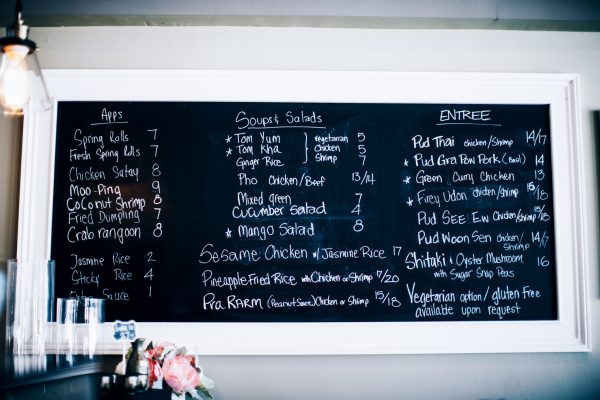 Apps
Spring Rolls 7
Fresh Spring rolls 7
Chicken Satay 8
Moo-Ping 9
Coconut Shrimp 8
Fried Dumpling 7
Crab rangoon 8
Jasmine Rice 2
Sticky Rice 4
Sauce 1
Soups & Salads
* Tom Yum vegetarian 5
* Tom Kha Chicken 5
Ginger Rice Shrimp 7
Pho Chicken/Beef 13/14
Mixed green 7
Cucumber Salad 4
* Mango Salad 8
Sesame Chicken w/ Jasmine Rice 17
Pineapple Fried Rice with Chicken or Shrimp 17/20
Pra RARM (Peanut Sauce) Chicken or Shrimp 15/18
ENTREE
Pud Thai chicken/Shrimp 14/17
* Pud Gra Pow Pork (Basil) 14
* Green Curry Chicken 13
* Firey Udon chicken/shrimp 15/18
Pud SEE Ew Chicken/Shrimp 15/18
Pud Woon Sen chicken/Shrimp 14/17
Shitaki & Oyster Mushroom 16
with Sugar Snap Peas
Vegetarian option/gluten free
available upon request